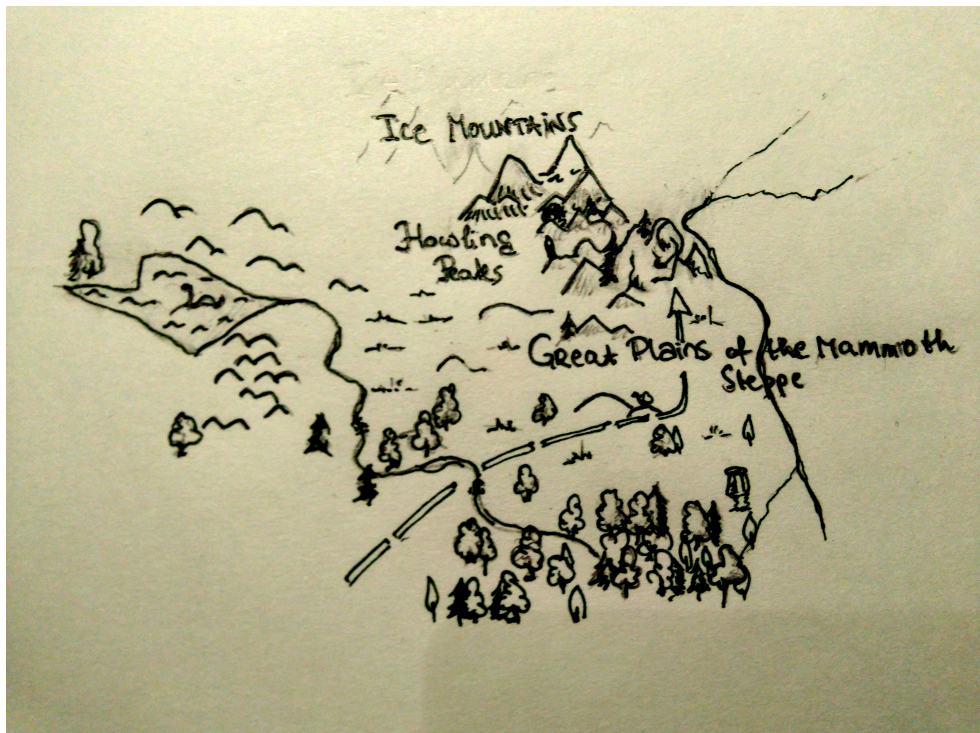 Ice Mountains
Howling
Peaks
Great Plains of the Mammoth
Steppe